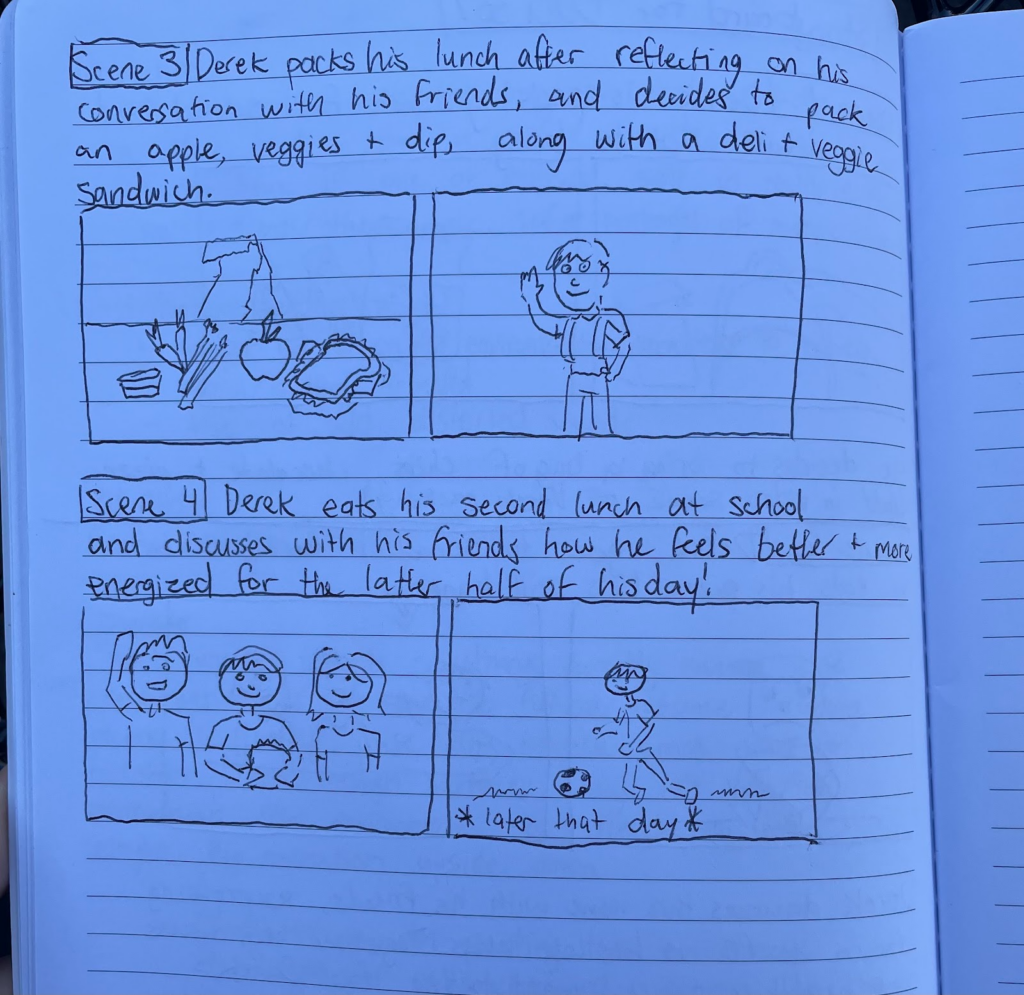 Scene 3 Derek packs his lunch after reflecting on his
conversation with his friends, and decides to pack
an apple, veggies + dip, along with a deli + veggie
sandwich.
Scene 4 Derek eats his second lunch at school
and discusses with his friends how he feels better + more
energized for the latter half of his day!
*later that day*